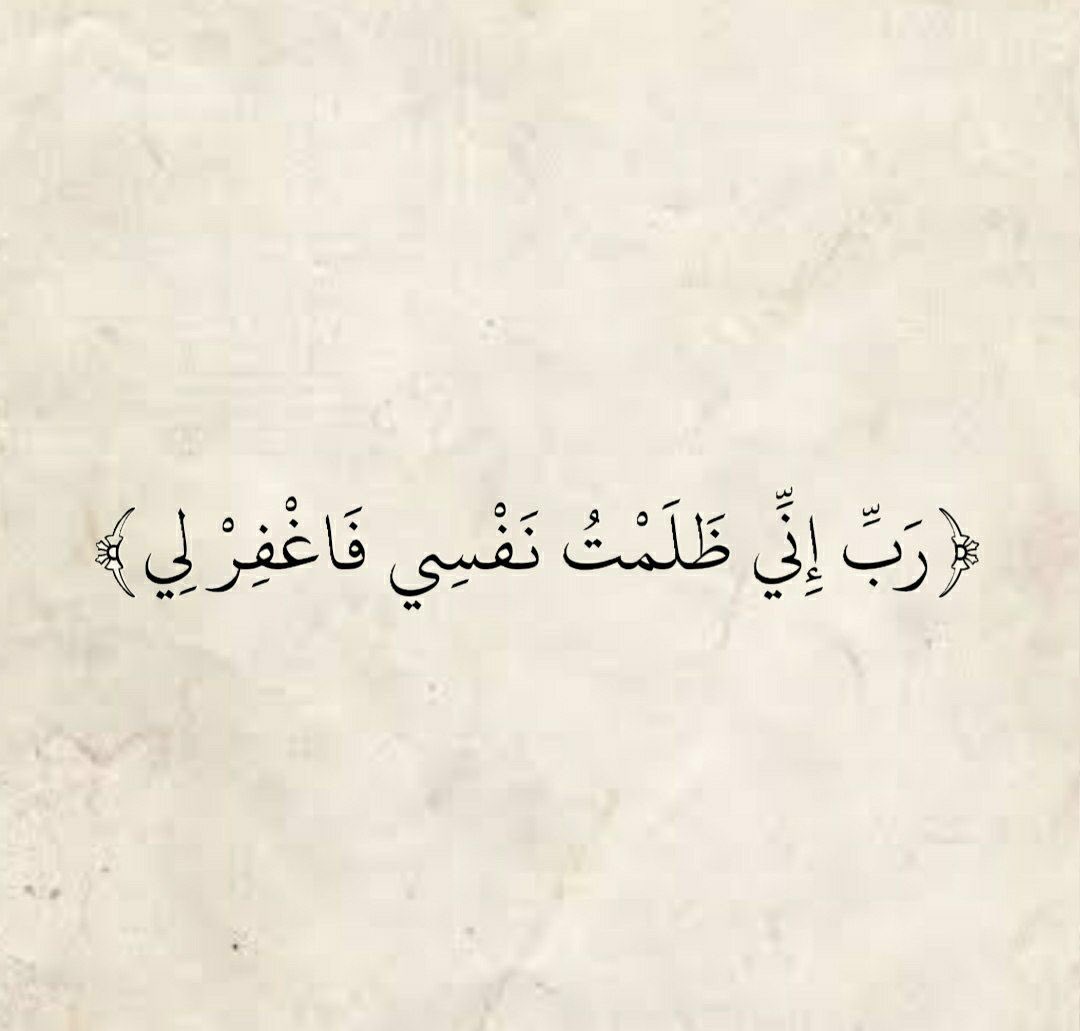 ﴿ رَبِّ إِنِّي ظَلَمْتُ نَفْسِي فَاغْفِرْ لِي ﴾